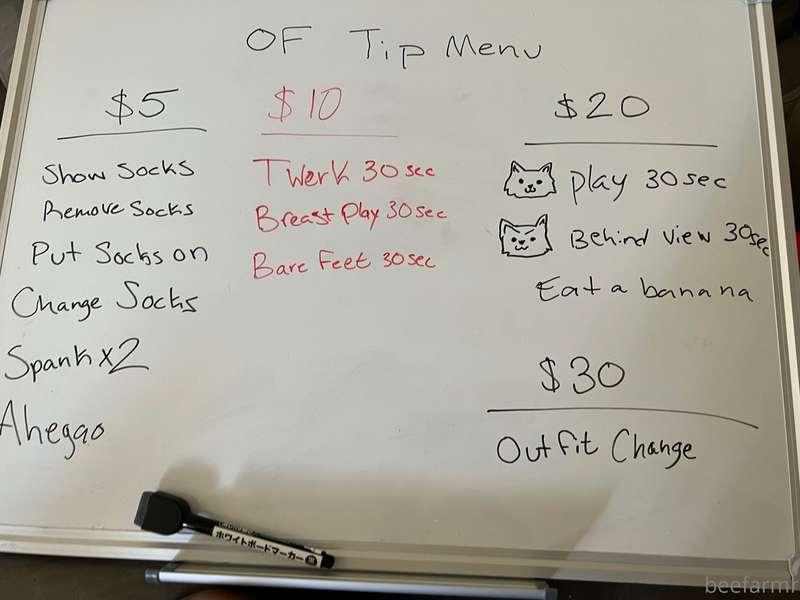 OF Tip Menu
$5
Show Socks
Remove Socks
Put Socks on
Change Socks
Spank x2
Ahegao
$10
Twerk 30 sec
Breast Play 30 sec
Bare Feet 30 sec
$20
play 30 sec
Behind view 30 sec
Eat a banana
$30
Outfit Change
ホワイトボードマーカー
beefarmr